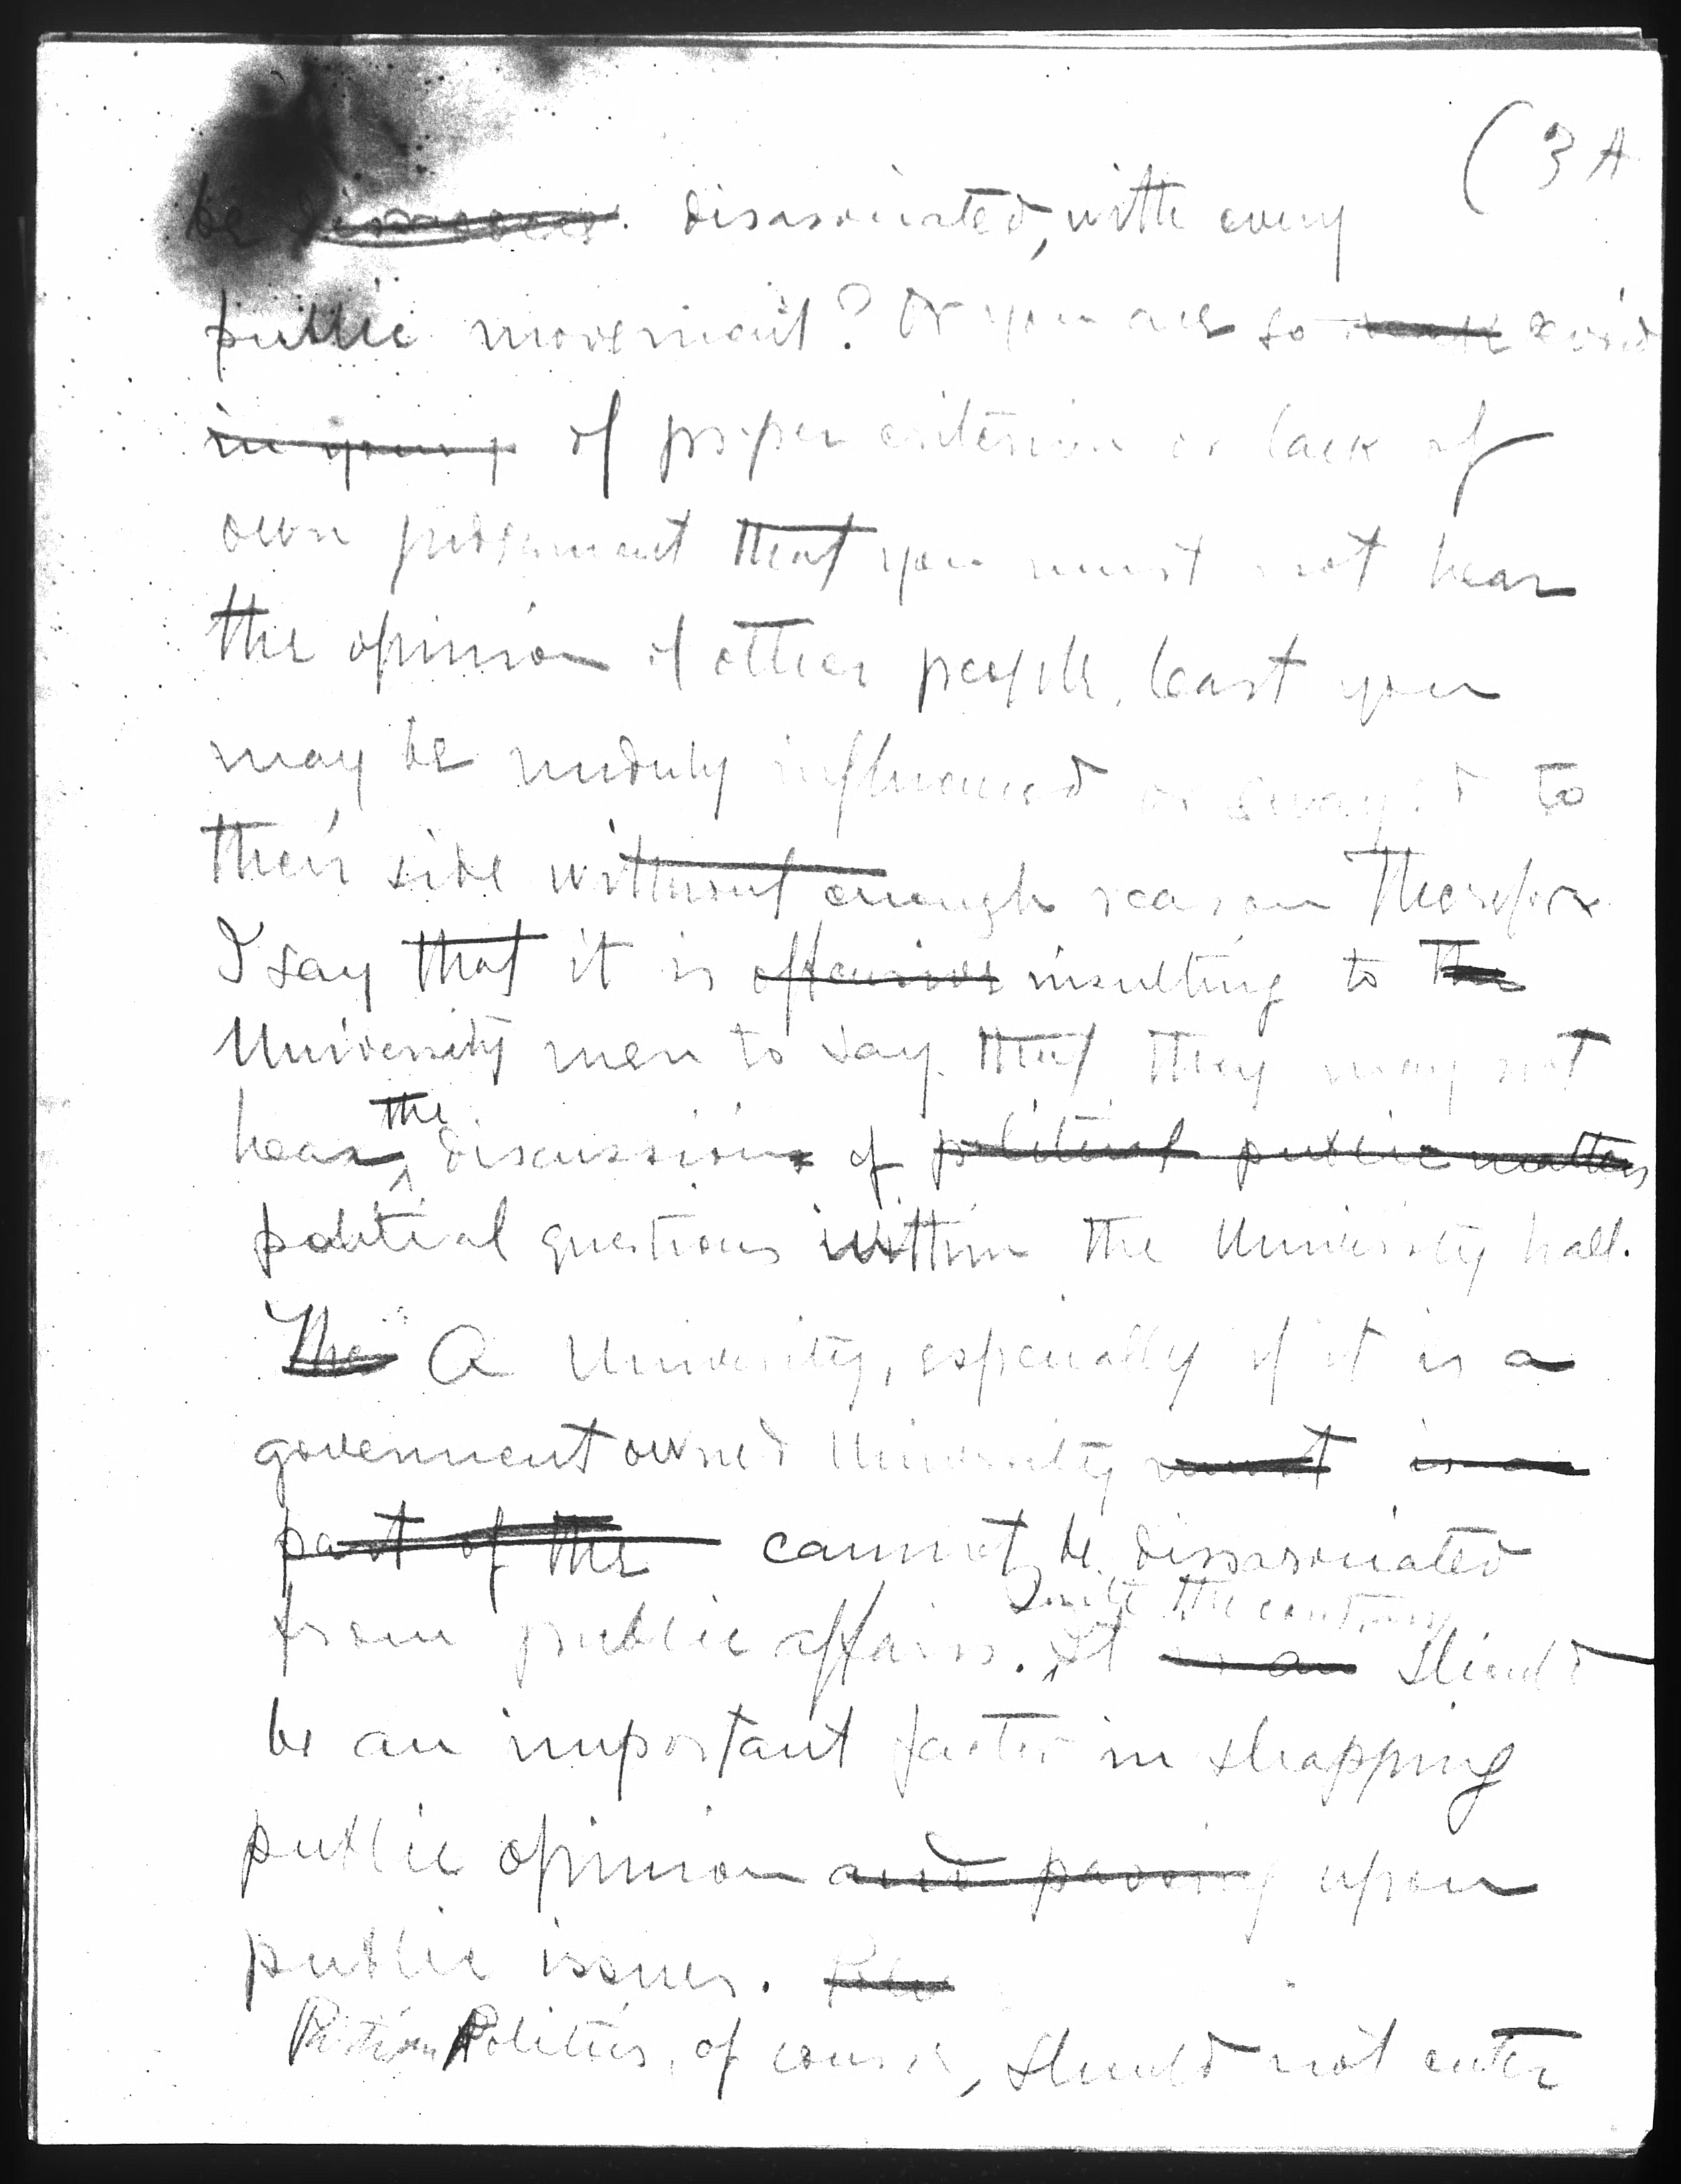 (3 A
be disassociated, with every
public movement? Or you are so void
in your of proper criterion or lack of
own judgement that you must not hear
the opinion of other people, least you
may be unduly influenced or swayed to
their side without enough reason Therefore
I say that it is offensive insulting to the
University men to say that they may not
hear the discussions of political public matters
political questions within the University hall.
The A University, especially if it is a
government owned University must is a
part of the cannot be dissasociated
from public affairs. Quite the contrary It is an should
be an important factor in shapping
public opinion and passing upon
public issues.
Politics, of course, should not enter